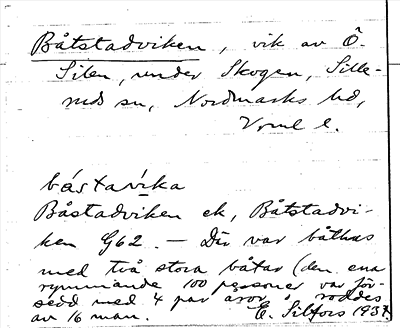 Båtstadviken, vik av Ö.
Silen, under Skogen, Sille-
ruds sn, Nordmarks hd,
Vrml l.
bástavíka
Båstadviken ek, Båtstadvi-
ken G62. – Där var båthus
med två stora båtar (den ena
rymmande 100 personer var för-
sedd med 4 par åror o. roddes
av 16 man. E. Silfors 1937.